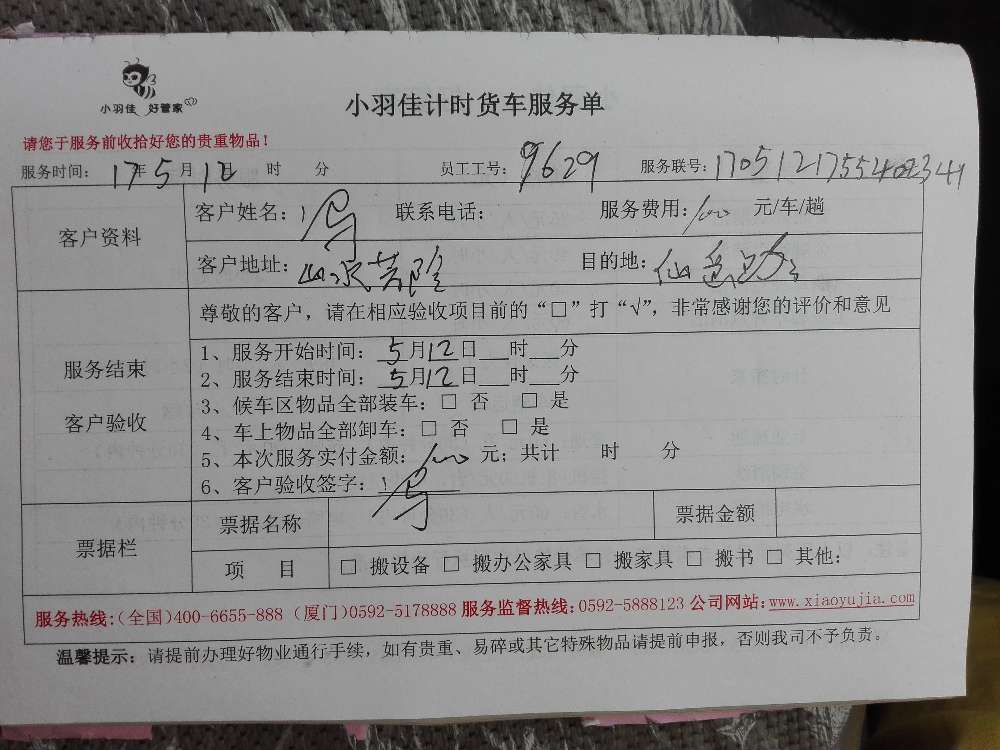 小羽佳 好管家
小羽佳计时货车服务单
请您于服务前收拾好您的贵重物品!
服务时间: 17年5月12日 时 分 员工工号: 9629 服务联号:
客户资料
客户姓名: 联系电话: 服务费用: 100 元/车/趟
客户地址: 目的地: 仙岳路
服务结束
客户验收
尊敬的客户，请在相应验收项目前的“□”打“√”，非常感谢您的评价和意见
1、服务开始时间: 5月12日___时___分
2、服务结束时间: 5月12日___时___分
3、候车区物品全部装车: □ 否 □ 是
4、车上物品全部卸车: □ 否 □ 是
5、本次服务实付金额: 100 元; 共计 时 分
6、客户验收签字:
票据栏
票据名称 票据金额
项 目 □ 搬设备 □ 搬办公家具 □ 搬家具 □ 搬书 □ 其他:
服务热线:(全国)400-6655-888 (厦门)0592-5178888 服务监督热线:0592-5888123 公司网站:www.xiaoyujia.com
温馨提示: 请提前办理好物业通行手续，如有贵重、易碎或其它特殊物品请提前申报，否则我司不予负责。